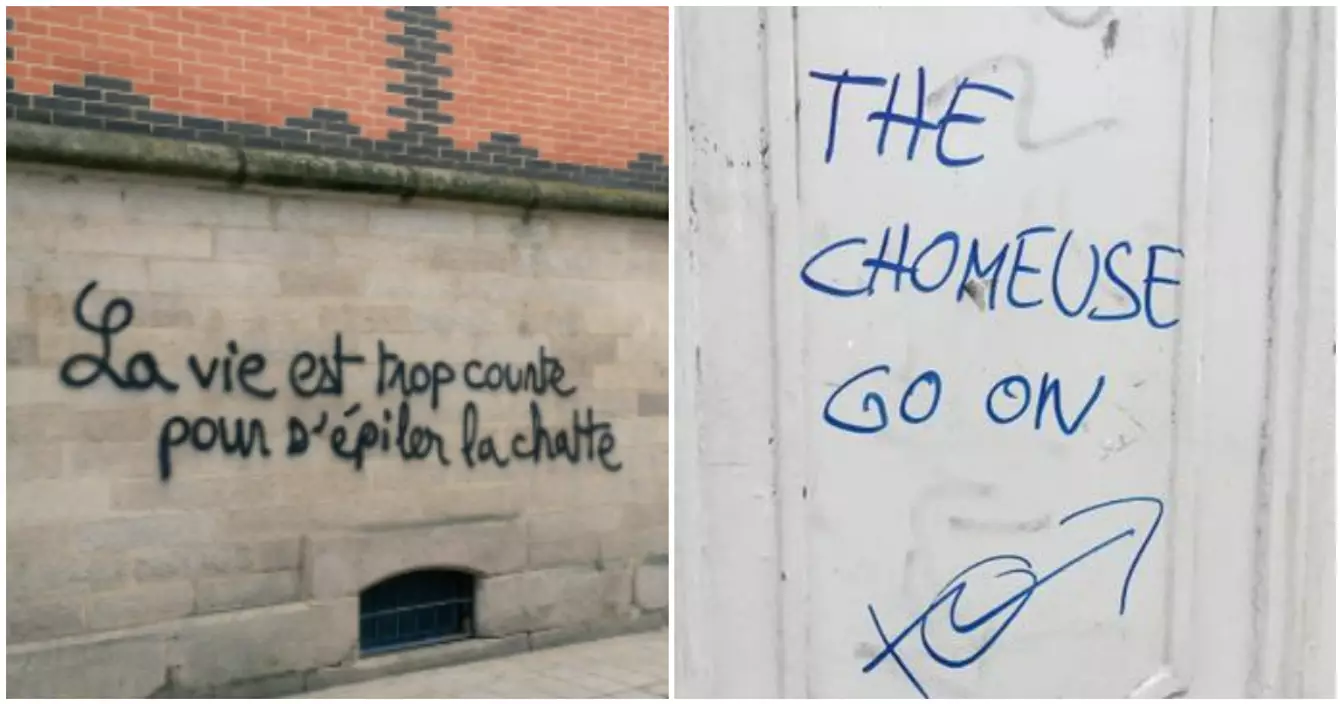 La vie est trop courte
pour s'épiler la chatte
THE
CHOMEUSE
GO ON